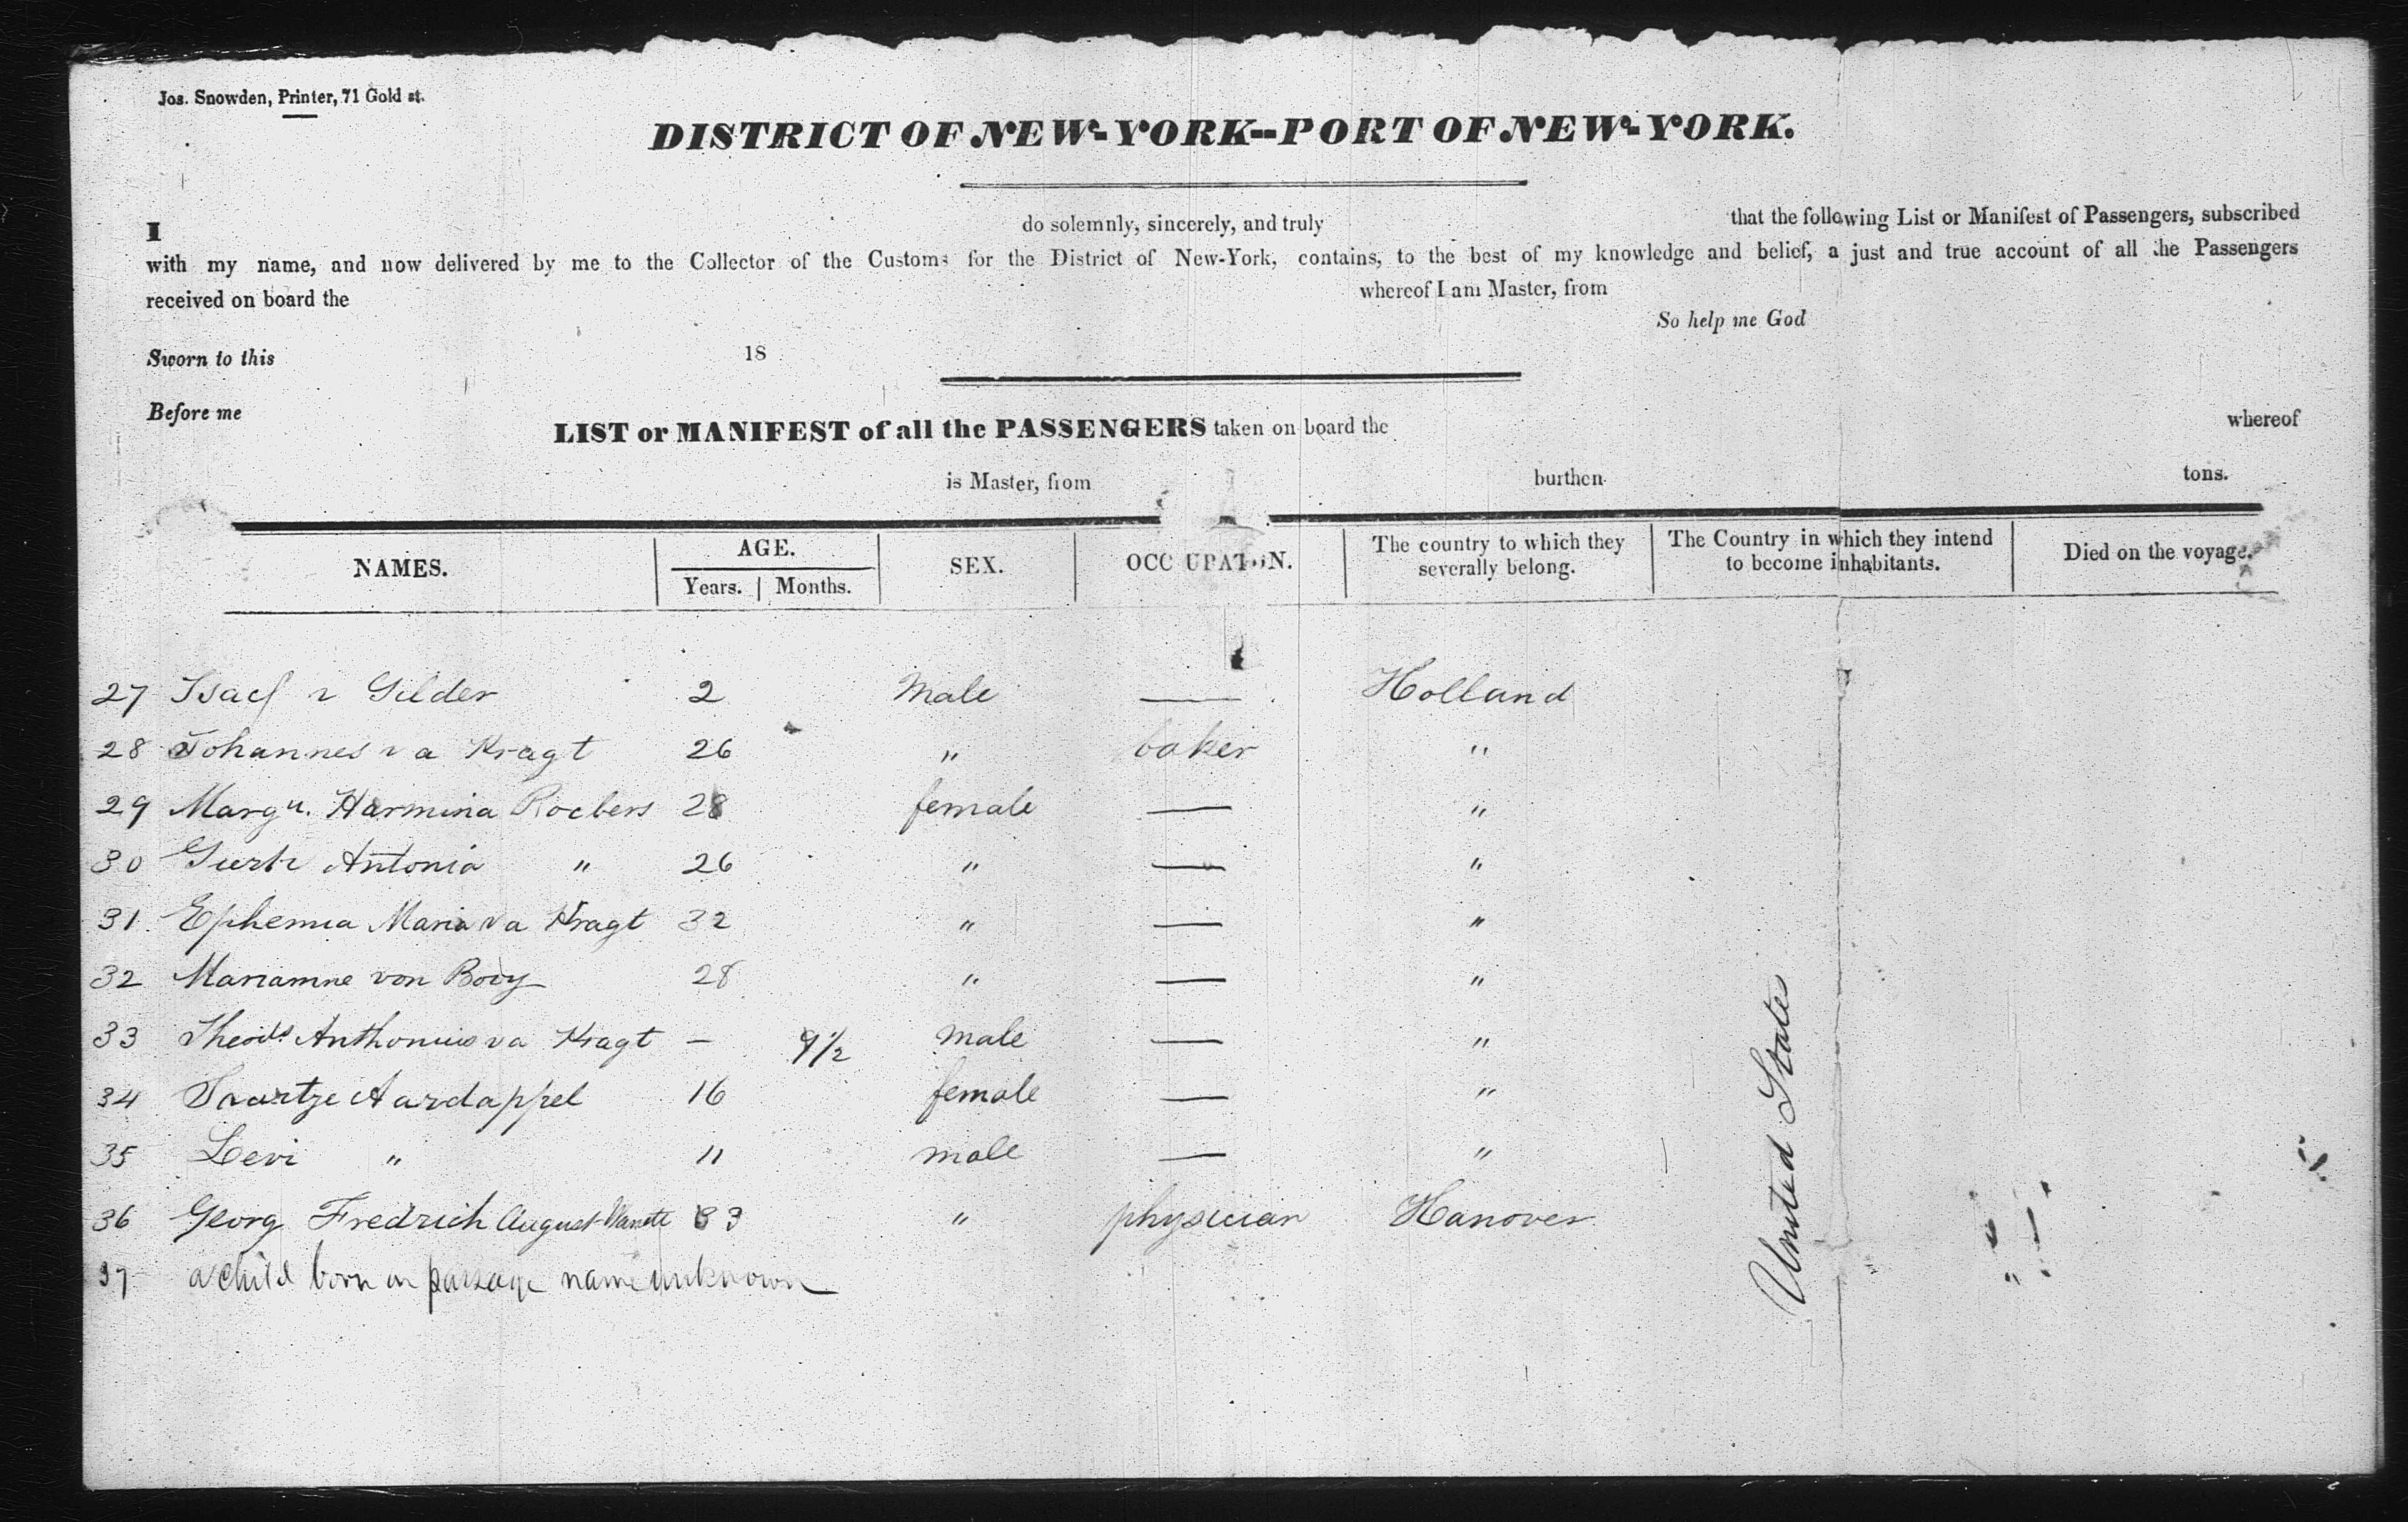 Jos. Snowden, Printer, 71 Gold st.
DISTRICT OF NEW-YORK--PORT OF NEW-YORK.
I do solemnly, sincerely, and truly that the following List or Manifest of Passengers, subscribed
with my name, and now delivered by me to the Collector of the Customs for the District of New-York, contains, to the best of my knowledge and belief, a just and true account of all the Passengers
received on board the whereof I am Master, from
So help me God
Sworn to this 18
Before me
LIST or MANIFEST of all the PASSENGERS taken on board the whereof
is Master, from burthen tons.
NAMES. AGE. Years. Months. SEX. OCCUPATION. The country to which they severally belong. The Country in which they intend to become inhabitants. Died on the voyage.
27 Isack v Gilder 2 Male — Holland
28 Johannes v a Kragt 26 " baker "
29 Margu. Harmina Rocbers 28 female — "
30 Antonia " 26 " — "
31. Ephemia Maria v a Kragt 32 " — "
32 Marianne von Booy 28 " — "
33 Anthonius v a Kragt — 9½ male — "
34 Saartze Aardappel 16 female — "
35 Levi " 11 male — "
36 Georg Fredrich August 33 " physician Hanover
37 a child born on passage name unknown
United States